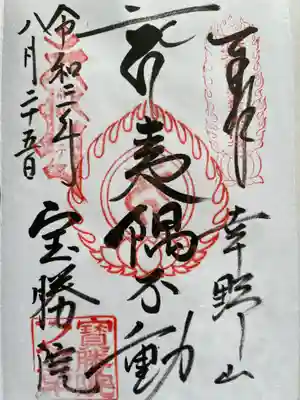 奉拝
幸野山
夷隅不動
令和二年
八月二十五日
宝勝院
寶勝院